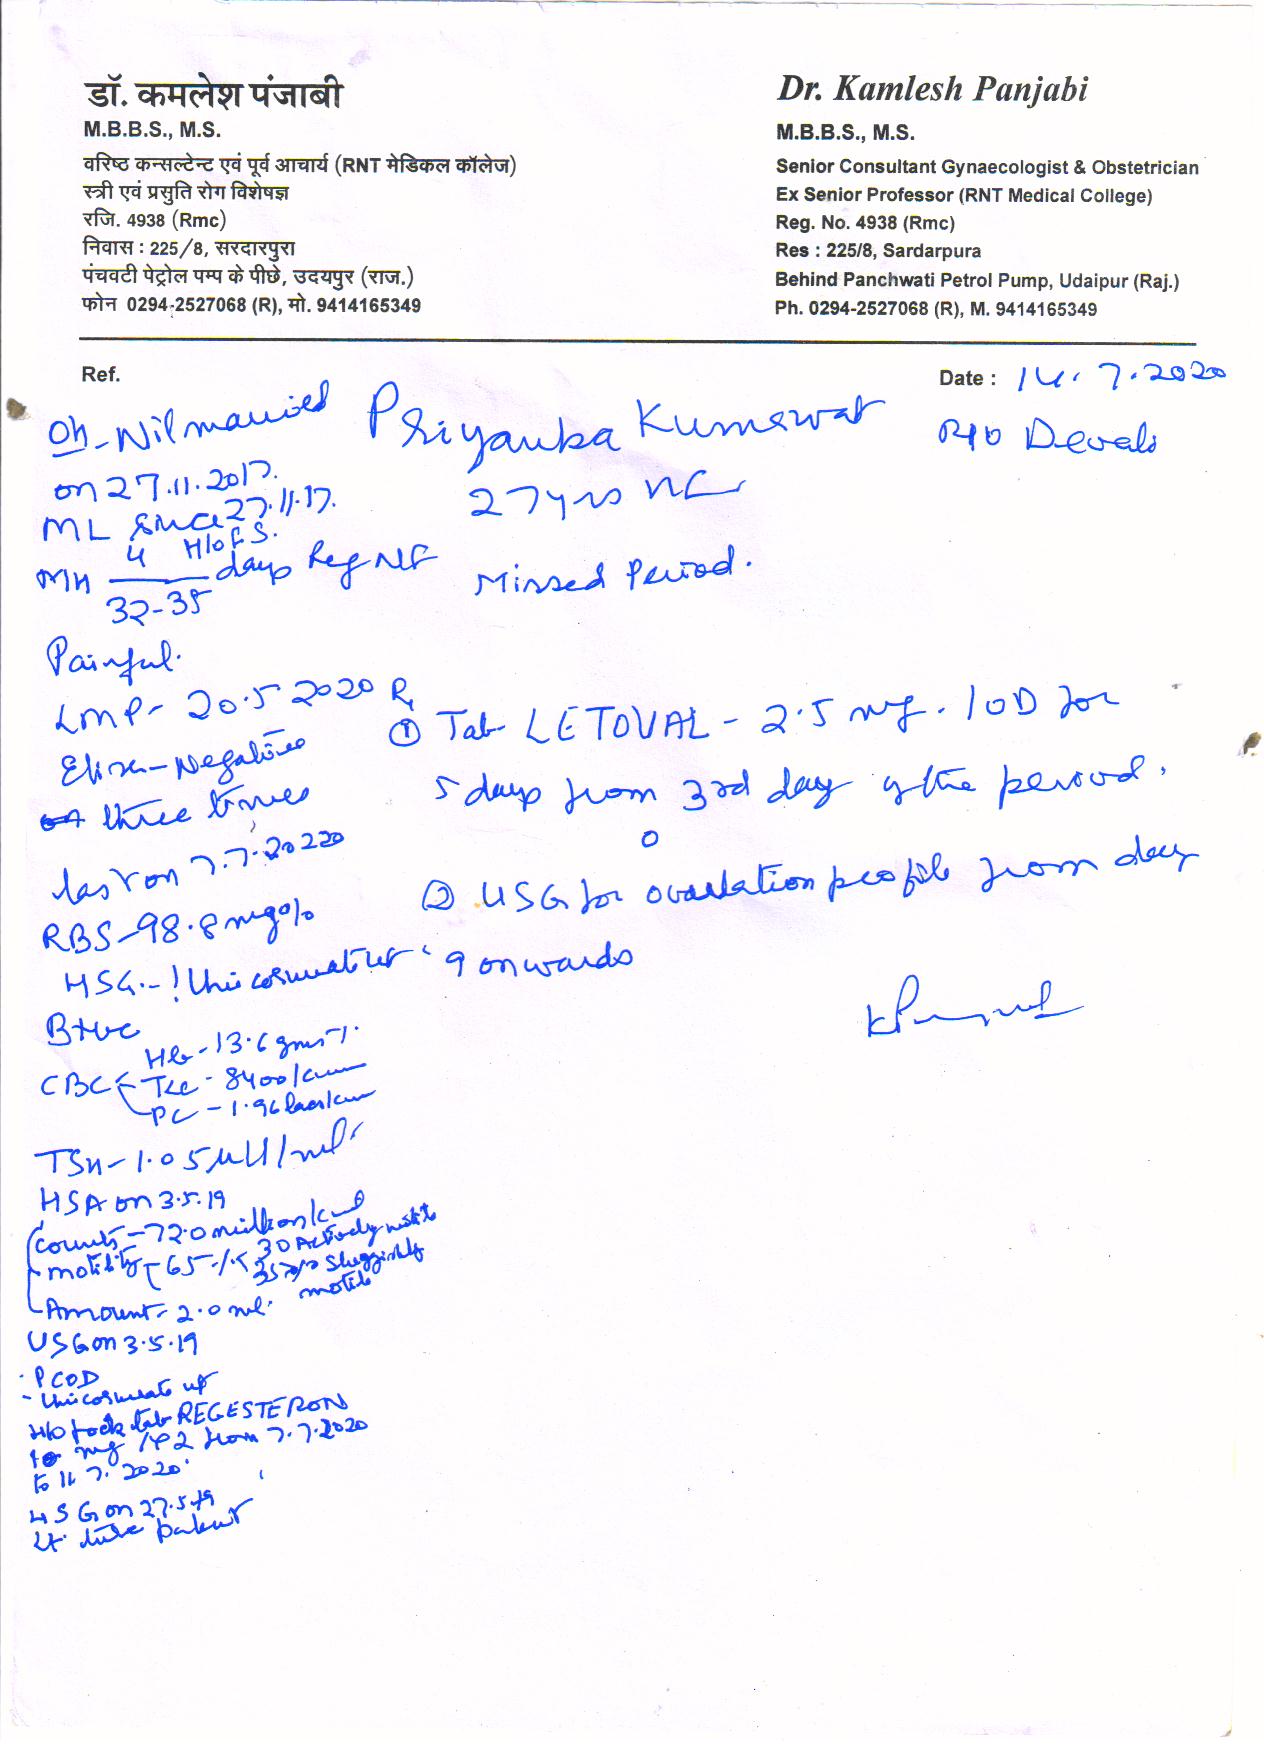 डॉ. कमलेश पंजाबी
M.B.B.S., M.S.
वरिष्ठ कन्सल्टेन्ट एवं पूर्व आचार्य (RNT मेडिकल कॉलेज)
स्त्री एवं प्रसुति रोग विशेषज्ञ
रजि. 4938 (Rmc)
निवास : 225/8, सरदारपुरा
पंचवटी पेट्रोल पम्प के पीछे, उदयपुर (राज.)
फोन 0294-2527068 (R), मो. 9414165349
Dr. Kamlesh Panjabi
M.B.B.S., M.S.
Senior Consultant Gynaecologist & Obstetrician
Ex Senior Professor (RNT Medical College)
Reg. No. 4938 (Rmc)
Res : 225/8, Sardarpura
Behind Panchwati Petrol Pump, Udaipur (Raj.)
Ph. 0294-2527068 (R), M. 9414165349
Ref.
Date : 14.7.2020
Priyanka Kumawat
R/o Devali
27yrs
Missed Period.
OH-Nil married
on 27.11.2017.
ML since 27.11.17.
H/o F.S.
MH 4/32-35 days Reg NF
Painful.
LMP- 20.5 2020
Elisa-Negative
three times
last on 7.7.2020
RBS-98.8mg%
HSG.-! Unicornuate ut
B+ve
CBC Hb-13.6gms%
TLC-8400/cumm
PC-1.96 lacs/cumm
TSH-1.05µIU/ml
HSA on 3.5.19
Counts-72.0 million/cml
motility-65% 30 Actively motile
35% Sluggishly
motile
Amount-2.0 ml.
USG on 3.5.19
PCOD
- Unicornuate ut
H/o took tab REGESTERON
10 mg 1x2 from 7.7.2020
to 11 7. 2020
HSG on 27.5.19
Lt. tube patent
R
① Tab LETOVAL-2.5 mg. 1OD for
5 days from 3rd day of the period.
② USG for ovulation profile from day
9 onwards